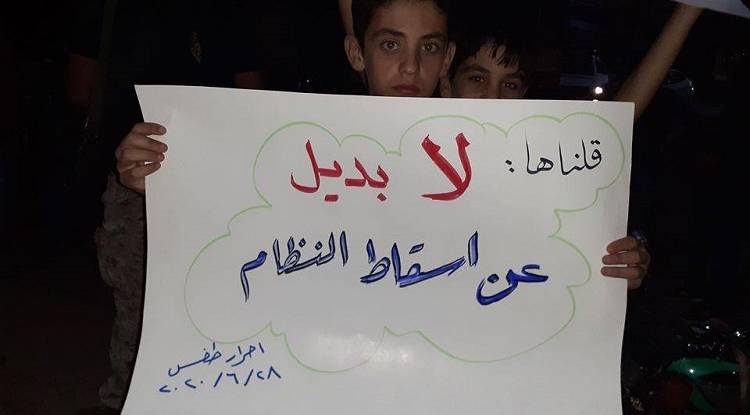 قلناها: لا بديل
عن اسقاط النظام
احرار طفس
٢٠٢٠/٦/٢٨